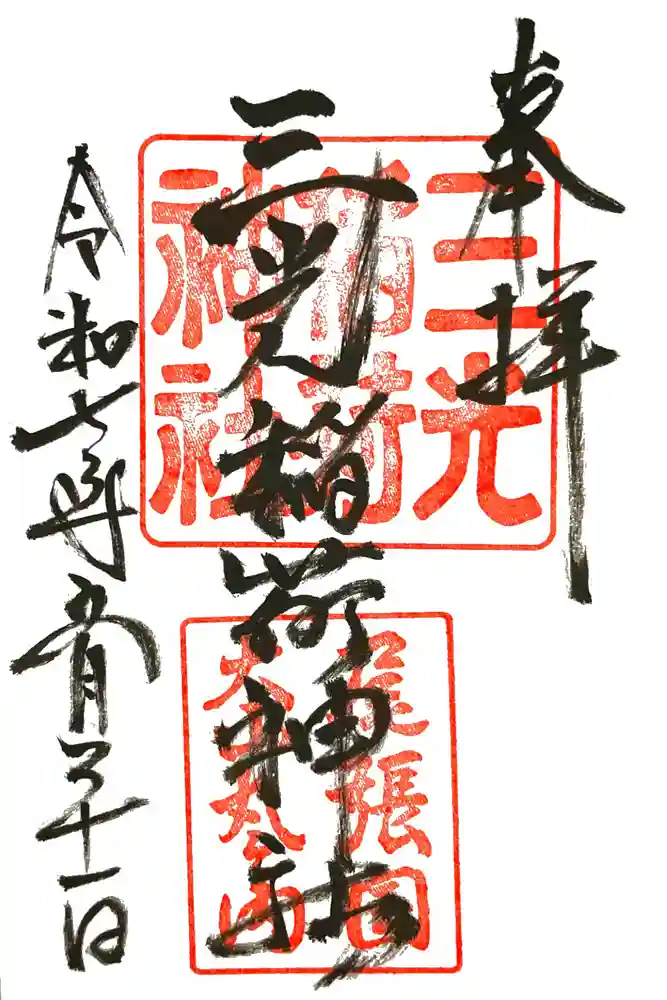 奉拝
三光稲荷神社
令和七年五月二十一日
三光
稲荷
神社
尾張国
犬山丸